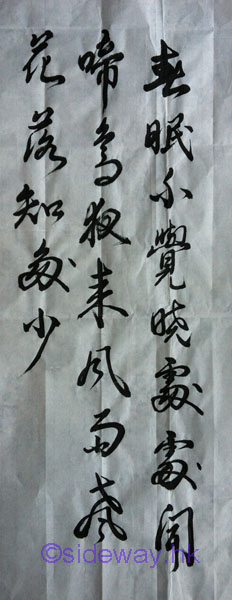 春眠不覺曉處處聞
啼鳥夜来風雨聲
花落知多少
©sideway.hk